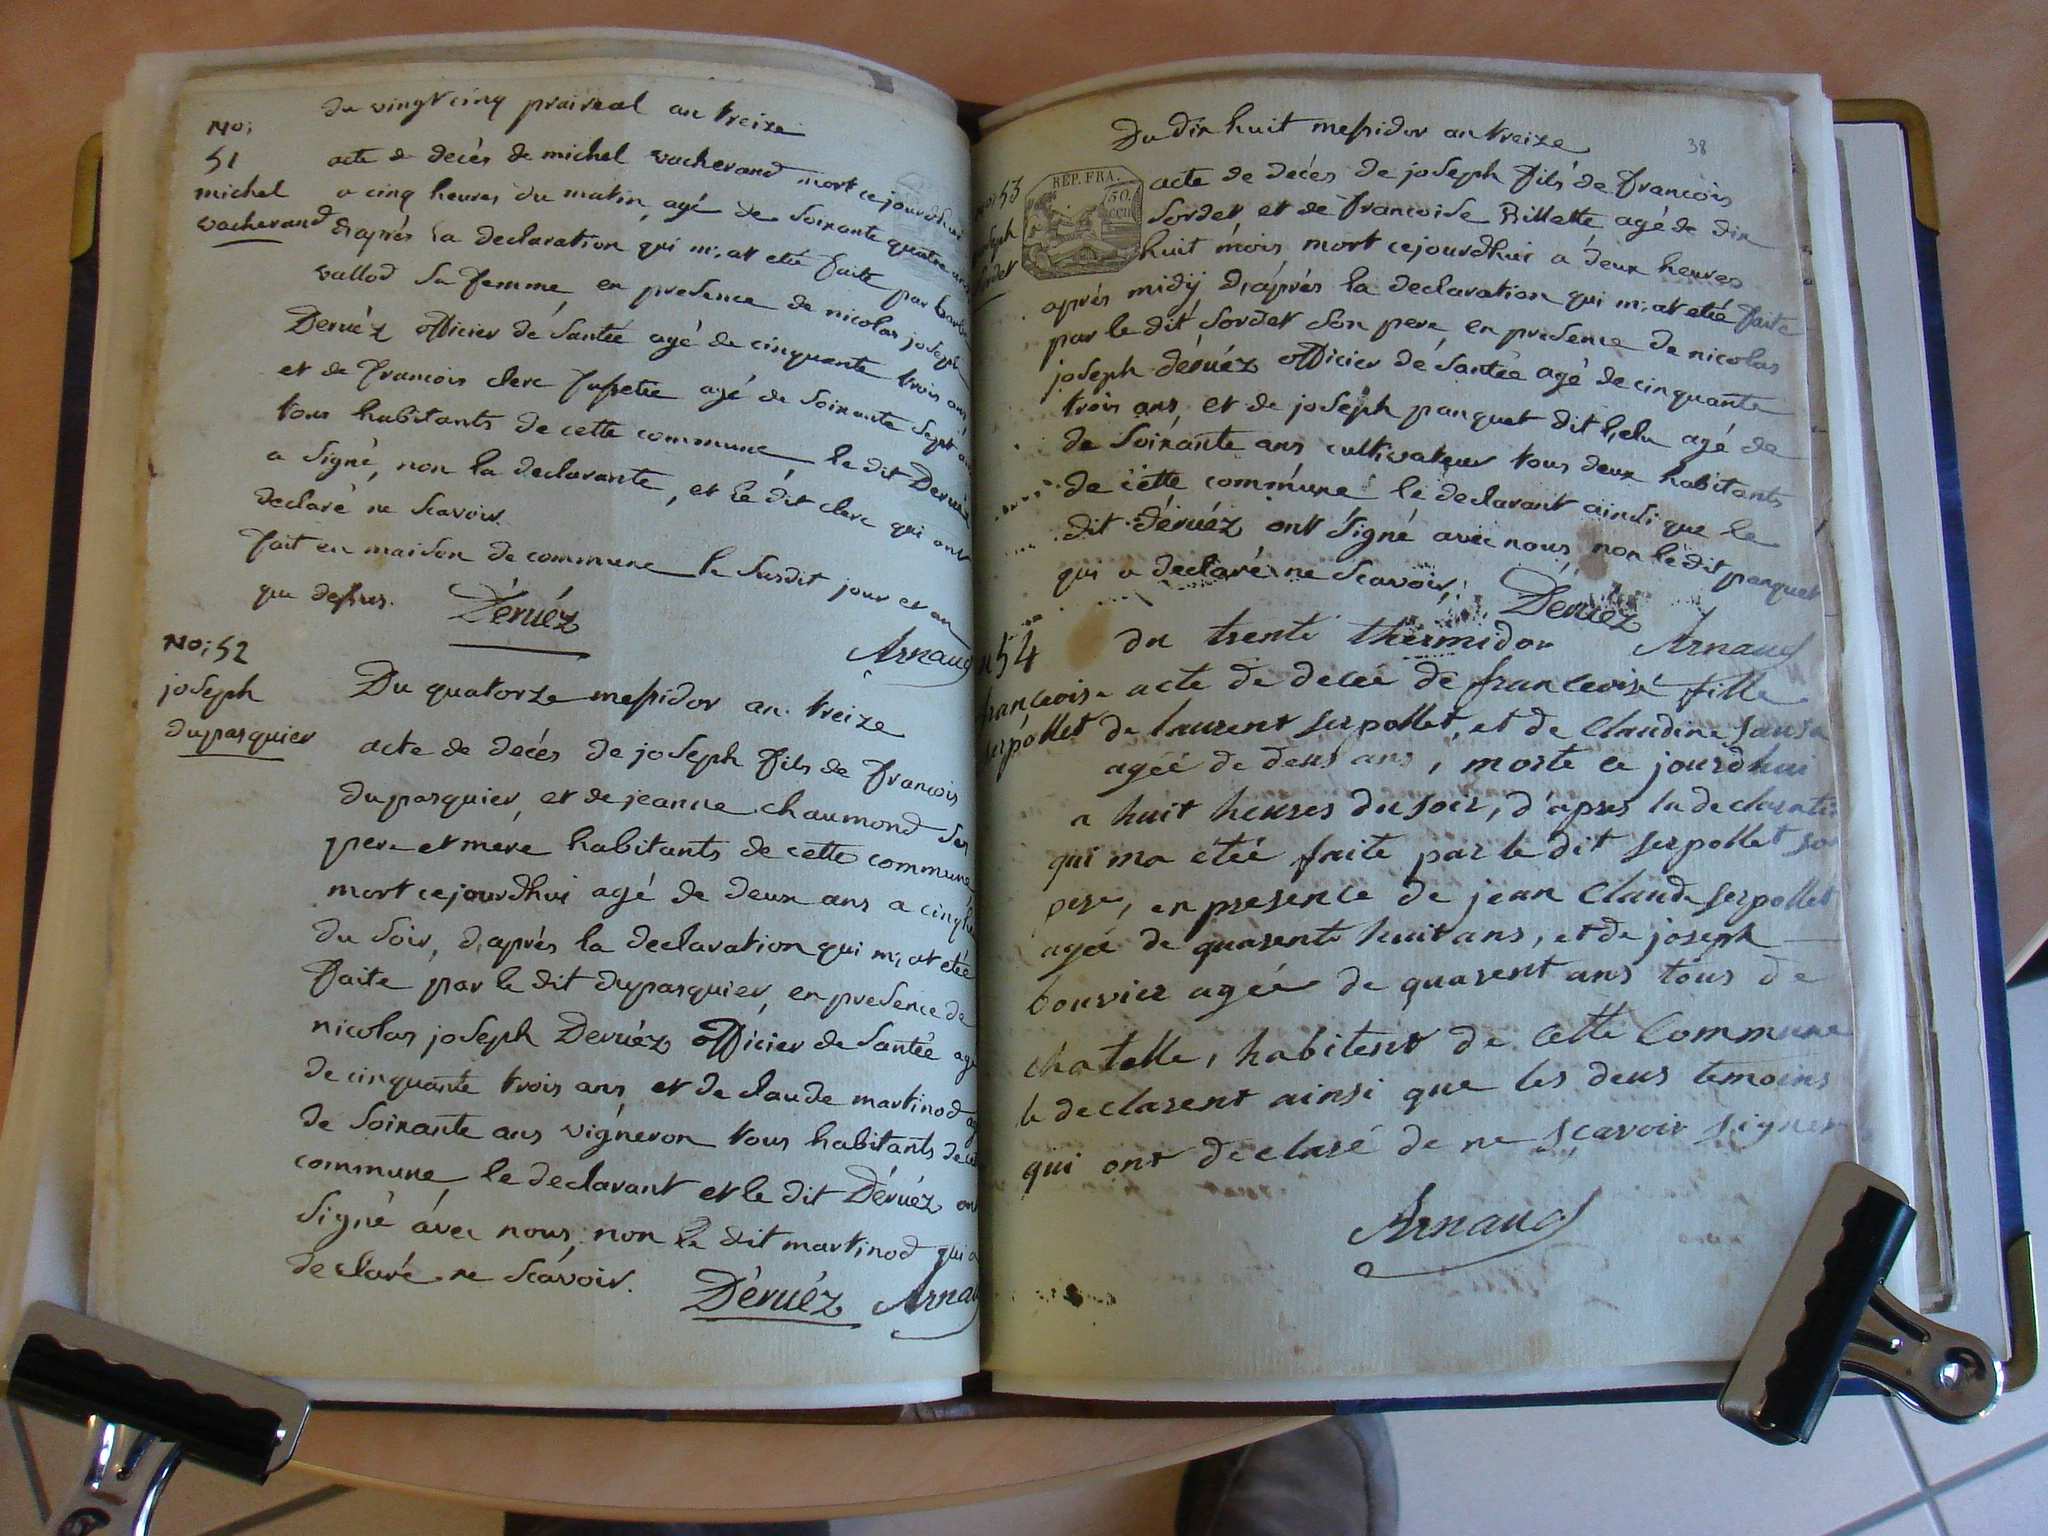 du vingt cinq praireal an treize
No;
51
michel
vacherand
acte de decès de michel vacherand mort ce jourdhui
a cinq heures du matin, agé de Soixante quatre ans
d,après la declaration qui m,at etée faite par
vallod sa femme, en presence de nicolas joseph
Deruéz officier de Santée agé de cinquante trois ans,
et de francois clerc agé de Soixante Sept ans
tous habitants de cette commune, le dit Deruéz
a Signé, non la declarante, et le dit clerc qui ont
declaré ne Scavoir.
fait en maison de commune le Susdit jour et an
que dessus. Déruéz
Arnaud
No; 52
joseph
duparquier
Du quatorze messidor an treize
acte de decés de joseph fils de francois
duparquier, et de jeanne chaumond Ses
pere et mere habitants de cette commune
mort cejourdhui agé de deux ans a cinq
du Soir, d,après la declaration qui m,at etée
faite par le dit duparquier, en presence de
nicolas joseph Deruéz officier de Santée agé
de cinquante trois ans et de claude martinod agé
de Soixante ans vigneron tous habitants de cette
commune, le declarant et le dit Déruéz ont
Signé avec nous, non le dit martinod qui a
declaré ne Scavoir.
Déruéz Arnaud
38
Du dix huit messidor an treize
no; 53
joseph
Sordet
REP. FRA.
50.
cen
acte de decés de joseph fils de francois
Sordet et de francoise Billette agé de dix
huit mois, mort cejourdhui a deux heures
après midy d,après la declaration qui m,at etée faite
par le dit Sordet Son pere, en presence de nicolas
joseph déruéz officier de Santée agé de cinquante
trois ans, et de joseph panquet dit agé de
de Soixante ans cultivateur tous deux habitants
de cette commune le declarant ainsi que le
dit déruéz ont Signé avec nous, non le dit panquet
qui a declaré ne Scavoir.
Déruéz Arnaud
n 54
françoise
serpollet
du trente thermidor
acte de decée de françoise fille
de laurent serpollet, et de claudine
ageé de deus ans, morte ce jourdhui
a huit heures du soir, d'apres la declaration
qui ma eteé faite par le dit serpollet son
pere, en presence de jean claude serpollet
ageé de quarente huit ans, et de joseph
bouvier ageé de quarent ans tous de
chatelle, habitent de cette commune
le declarent ainsi que les deus temoins
qui ont declaré de ne scavoir signer
Arnaud